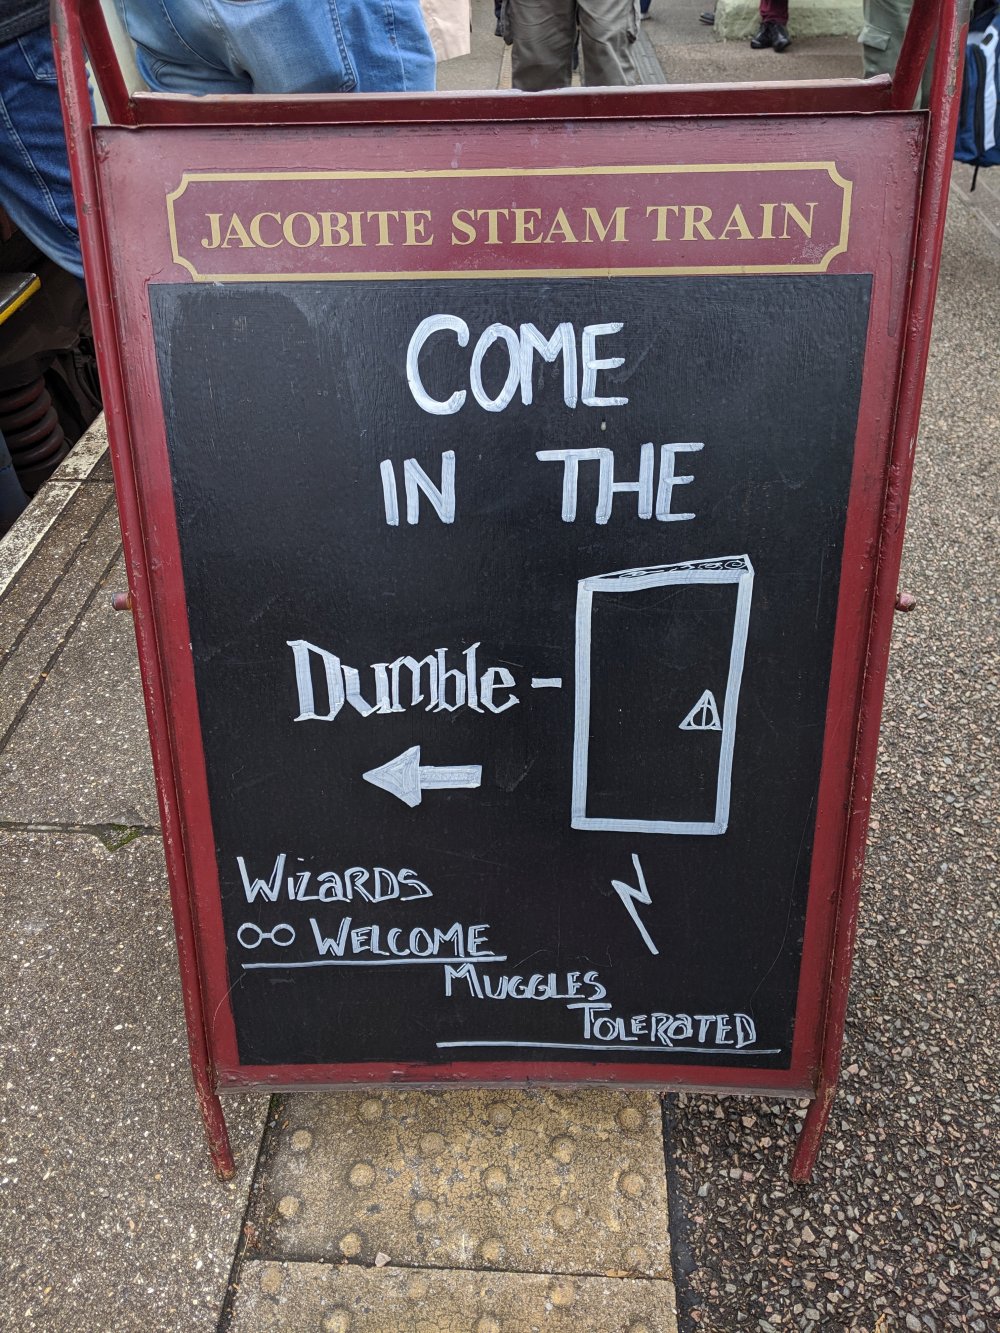 JACOBITE STEAM TRAIN
COME
IN THE
Dumble-
WIZARDS
WELCOME
MUGGLES
TOLERATED